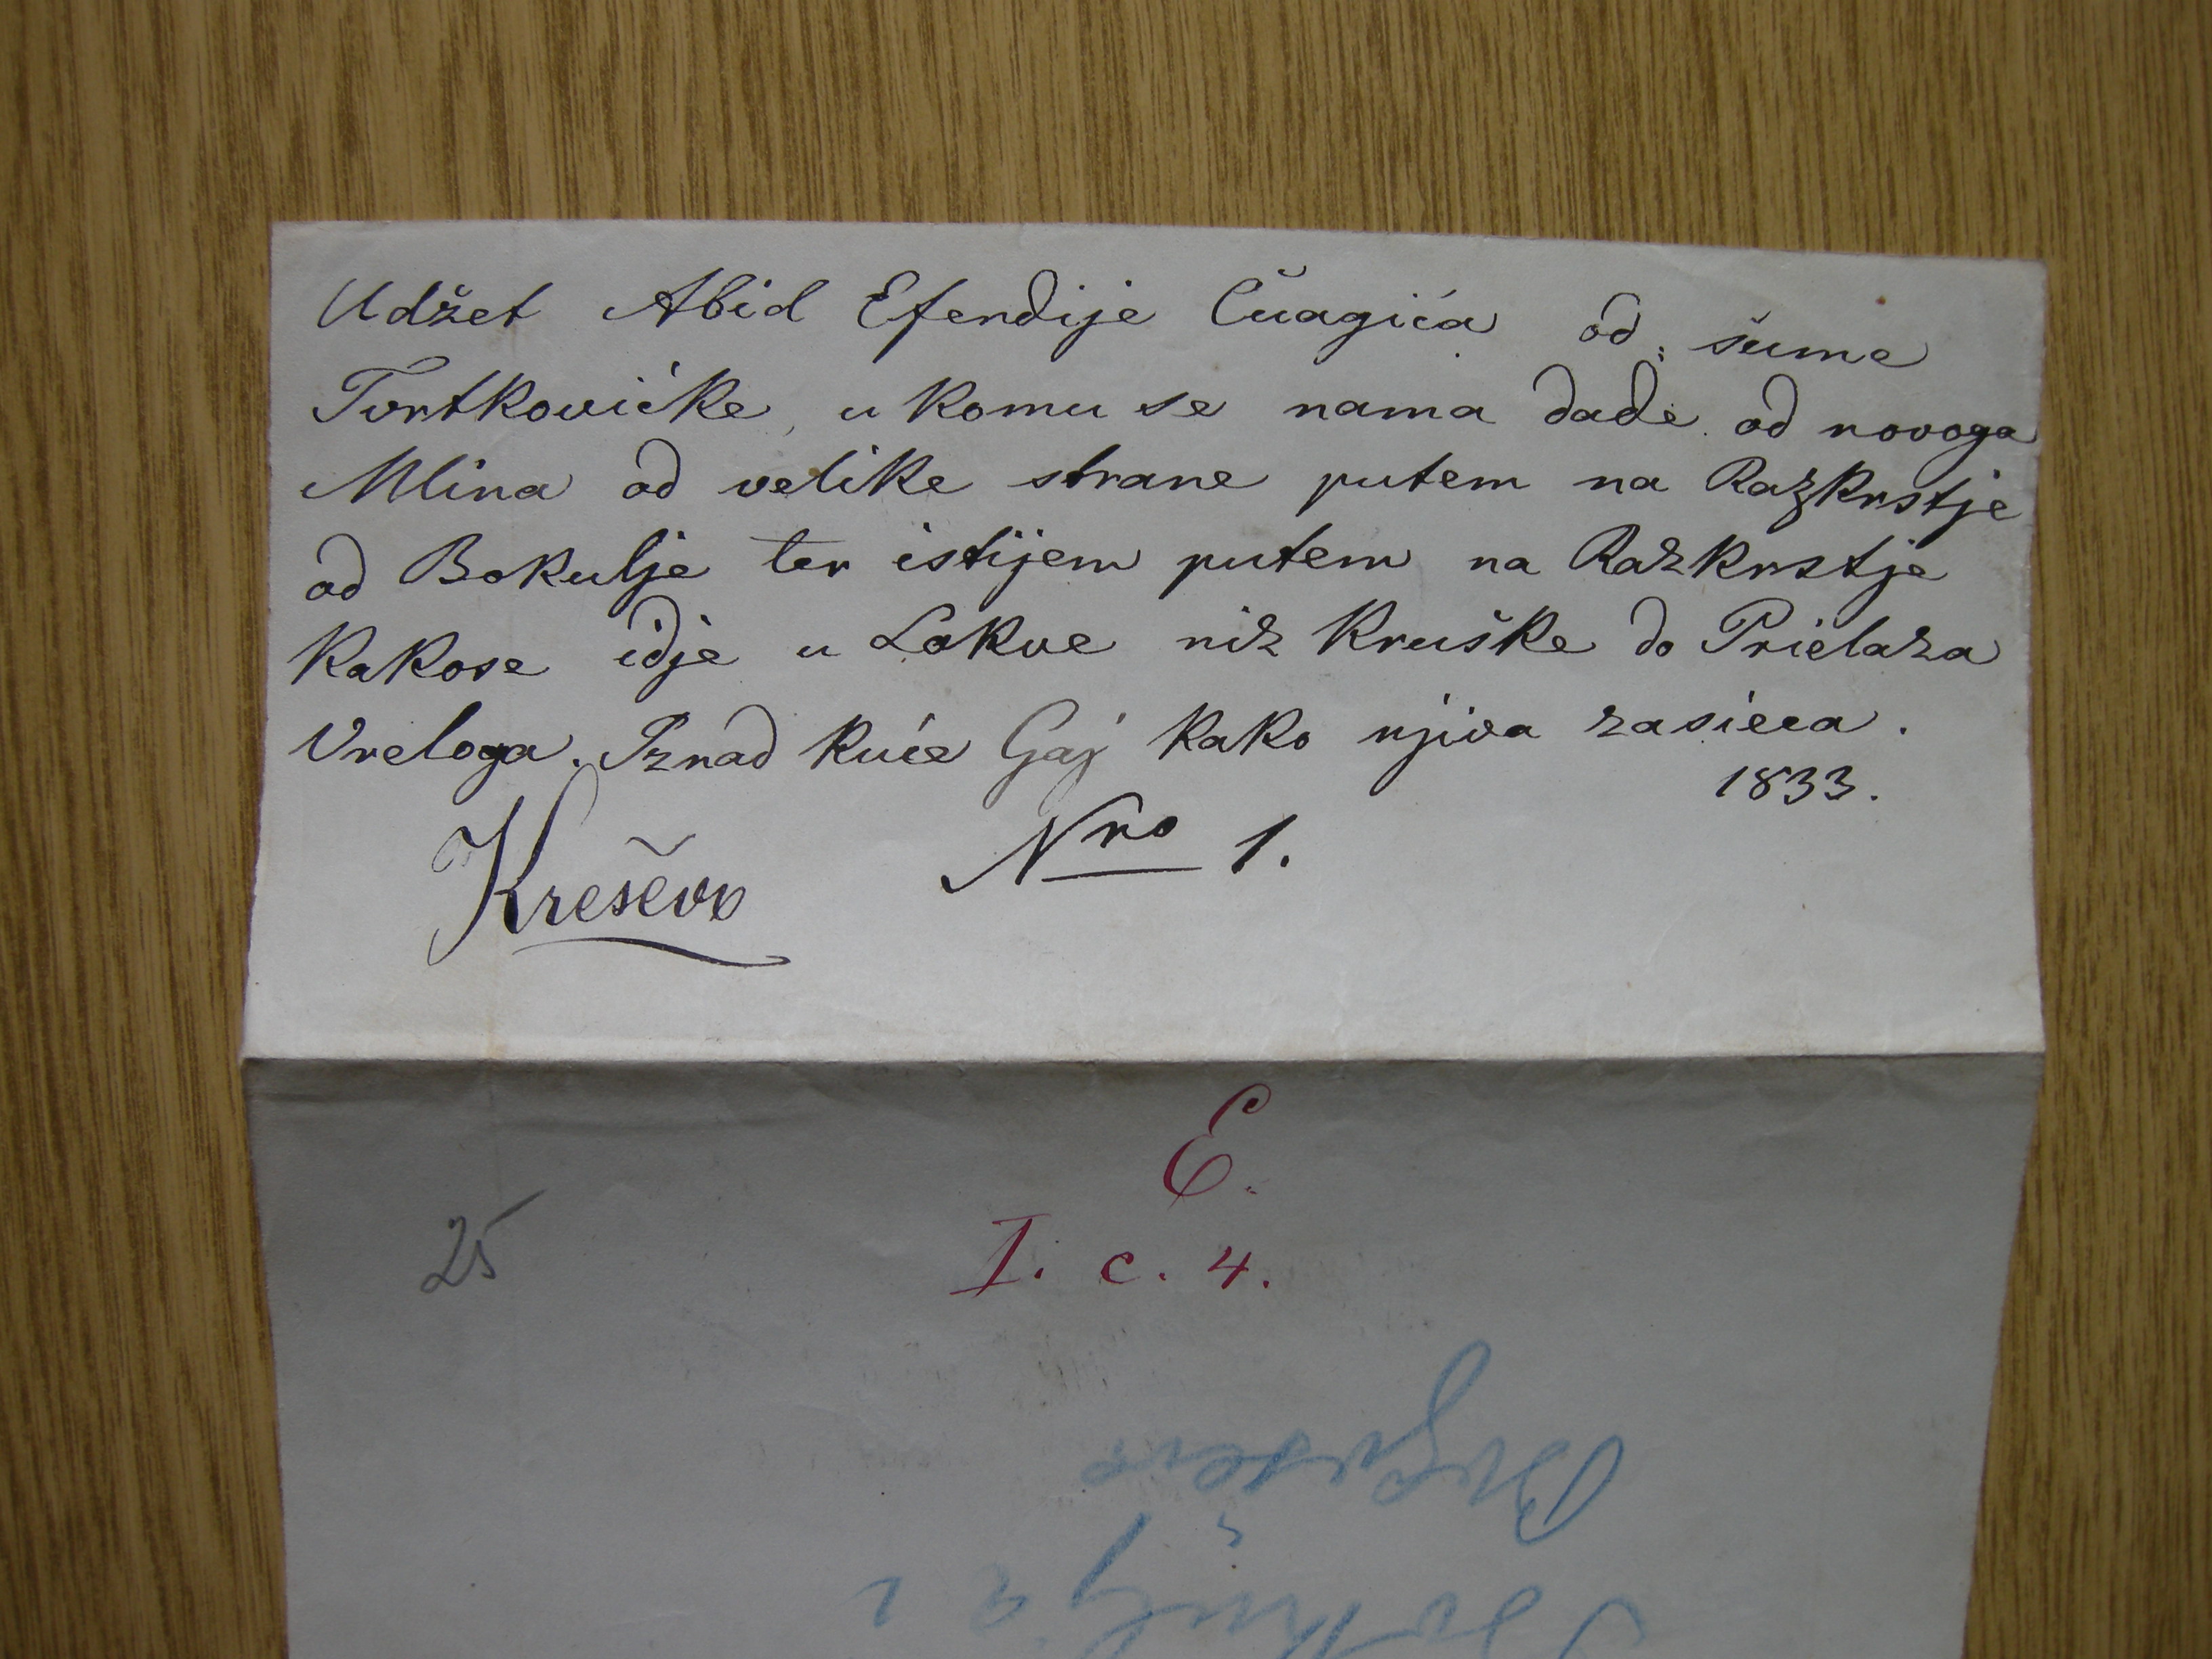 Udžet Abid Efendije Čuagića od šume
Tvrtkovićke, u komu se nama dade od novoga
Mlina od velike strane putem na Razkrstje
od Bokulje ter istijem putem na Razkrstje
kakose idje u Lokve niz Kruške do Prielaza
Vreloga. Iznad kuće Gaj kako njiva zasieca.
1833.
Kreševo Nro 1.
E.
25 I. c. 4.